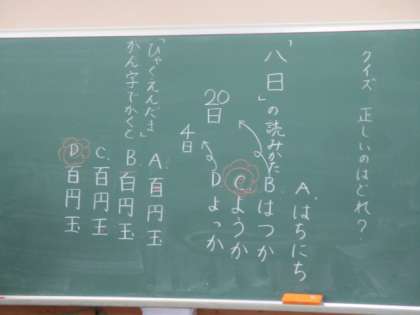 クイズ 正しいのはどれ?
「八日」の読みかた
A. はちにち
B はつか
20日
C. ようか
D よっか
4日
「ひゃくえんだま」
かん字でかくと
A. 百円玉
B. 百円玉
C. 百円玉
D. 百円玉